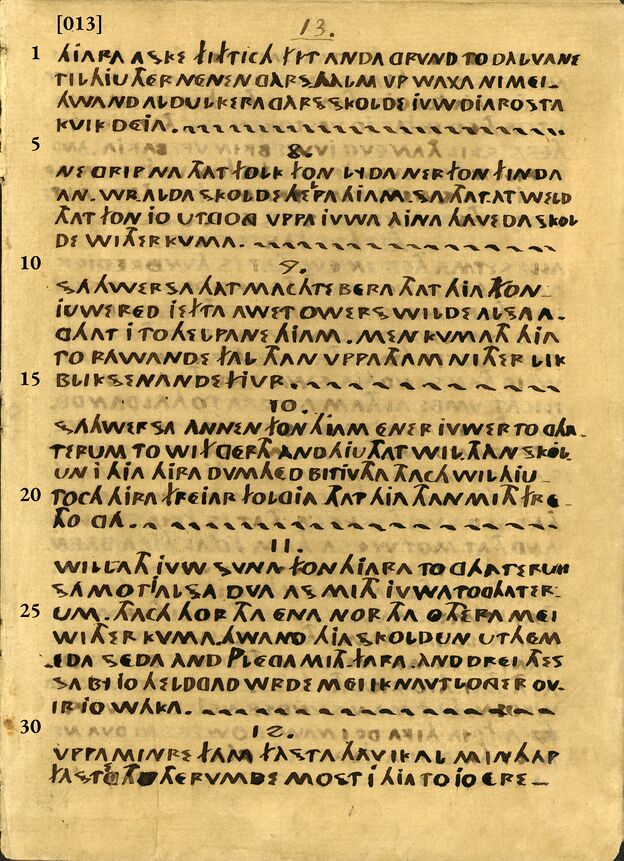 [013]
13.
1 HIARA ASKE FIFTICH FET ANDA GRUND TO DALVANE
TIL HIU THER NENEN GARS HALM UP WAXA NI MEI.
HWAND ALDULKERA GARS SKOLDE IUW DIAROSTA
KVIK DEIA.
5 8.
NE GRIP NA THAT FOLK FON LYDA NER FON FINDA
AN. WRALDA SKOLDE HELPA HIAM. SA THAT. AT WELD
THAT FON IO UTGONG UPPA IUWA AINA HAVEDA SKOL
DE WITHER KUMA.
10 9.
SAHWERSA HAT MACHTE BERA THAT HIA FON
IUWE RED IEFTA AWET OWERS WILDE ALSA A-
GHAT I TO HELPANE HIAM. MEN KUMATH HIA
TO RAWANDE FAL THAN UPPA THAM NITHER LIK
15 BLIKSENANDE FIUR.
10.
SAHWERSA ANNEN FON HIAM ENER IUWER TOGHA
TERUM TO WIF GERTH AND HIU THAT WIL THAN SKOL
UN I HIA HIRA DUMHED BITIUTHA THACH WIL HIU
20 TOCH HIRA FREIAR FOLGIA THAT HIA THAN MITH FRE
THO GA.
11.
WILLATH IUW SUNA FON HIARA TOGHATERUM
SA MOT I ALSA DUA AS MITH IUWA TOGHATER-
25 UM. THACH HOR THA ENA NOR THA OTHERA MEI
WITHER KUMA. HWAND HIA SKOLDUN UTHEM
EDA SEDA AND PLEGA MITH FARA. AND DREI THES
SA BY IO HELDGAD WRDE MEI IK NAVT LONGER OV-
IR IO WAKA.
30 12.
UPPA MINRE FAM FASTA HAV IK AL MIN HAP
FAST THERUMBE MOST I HIA TO IO ERE-